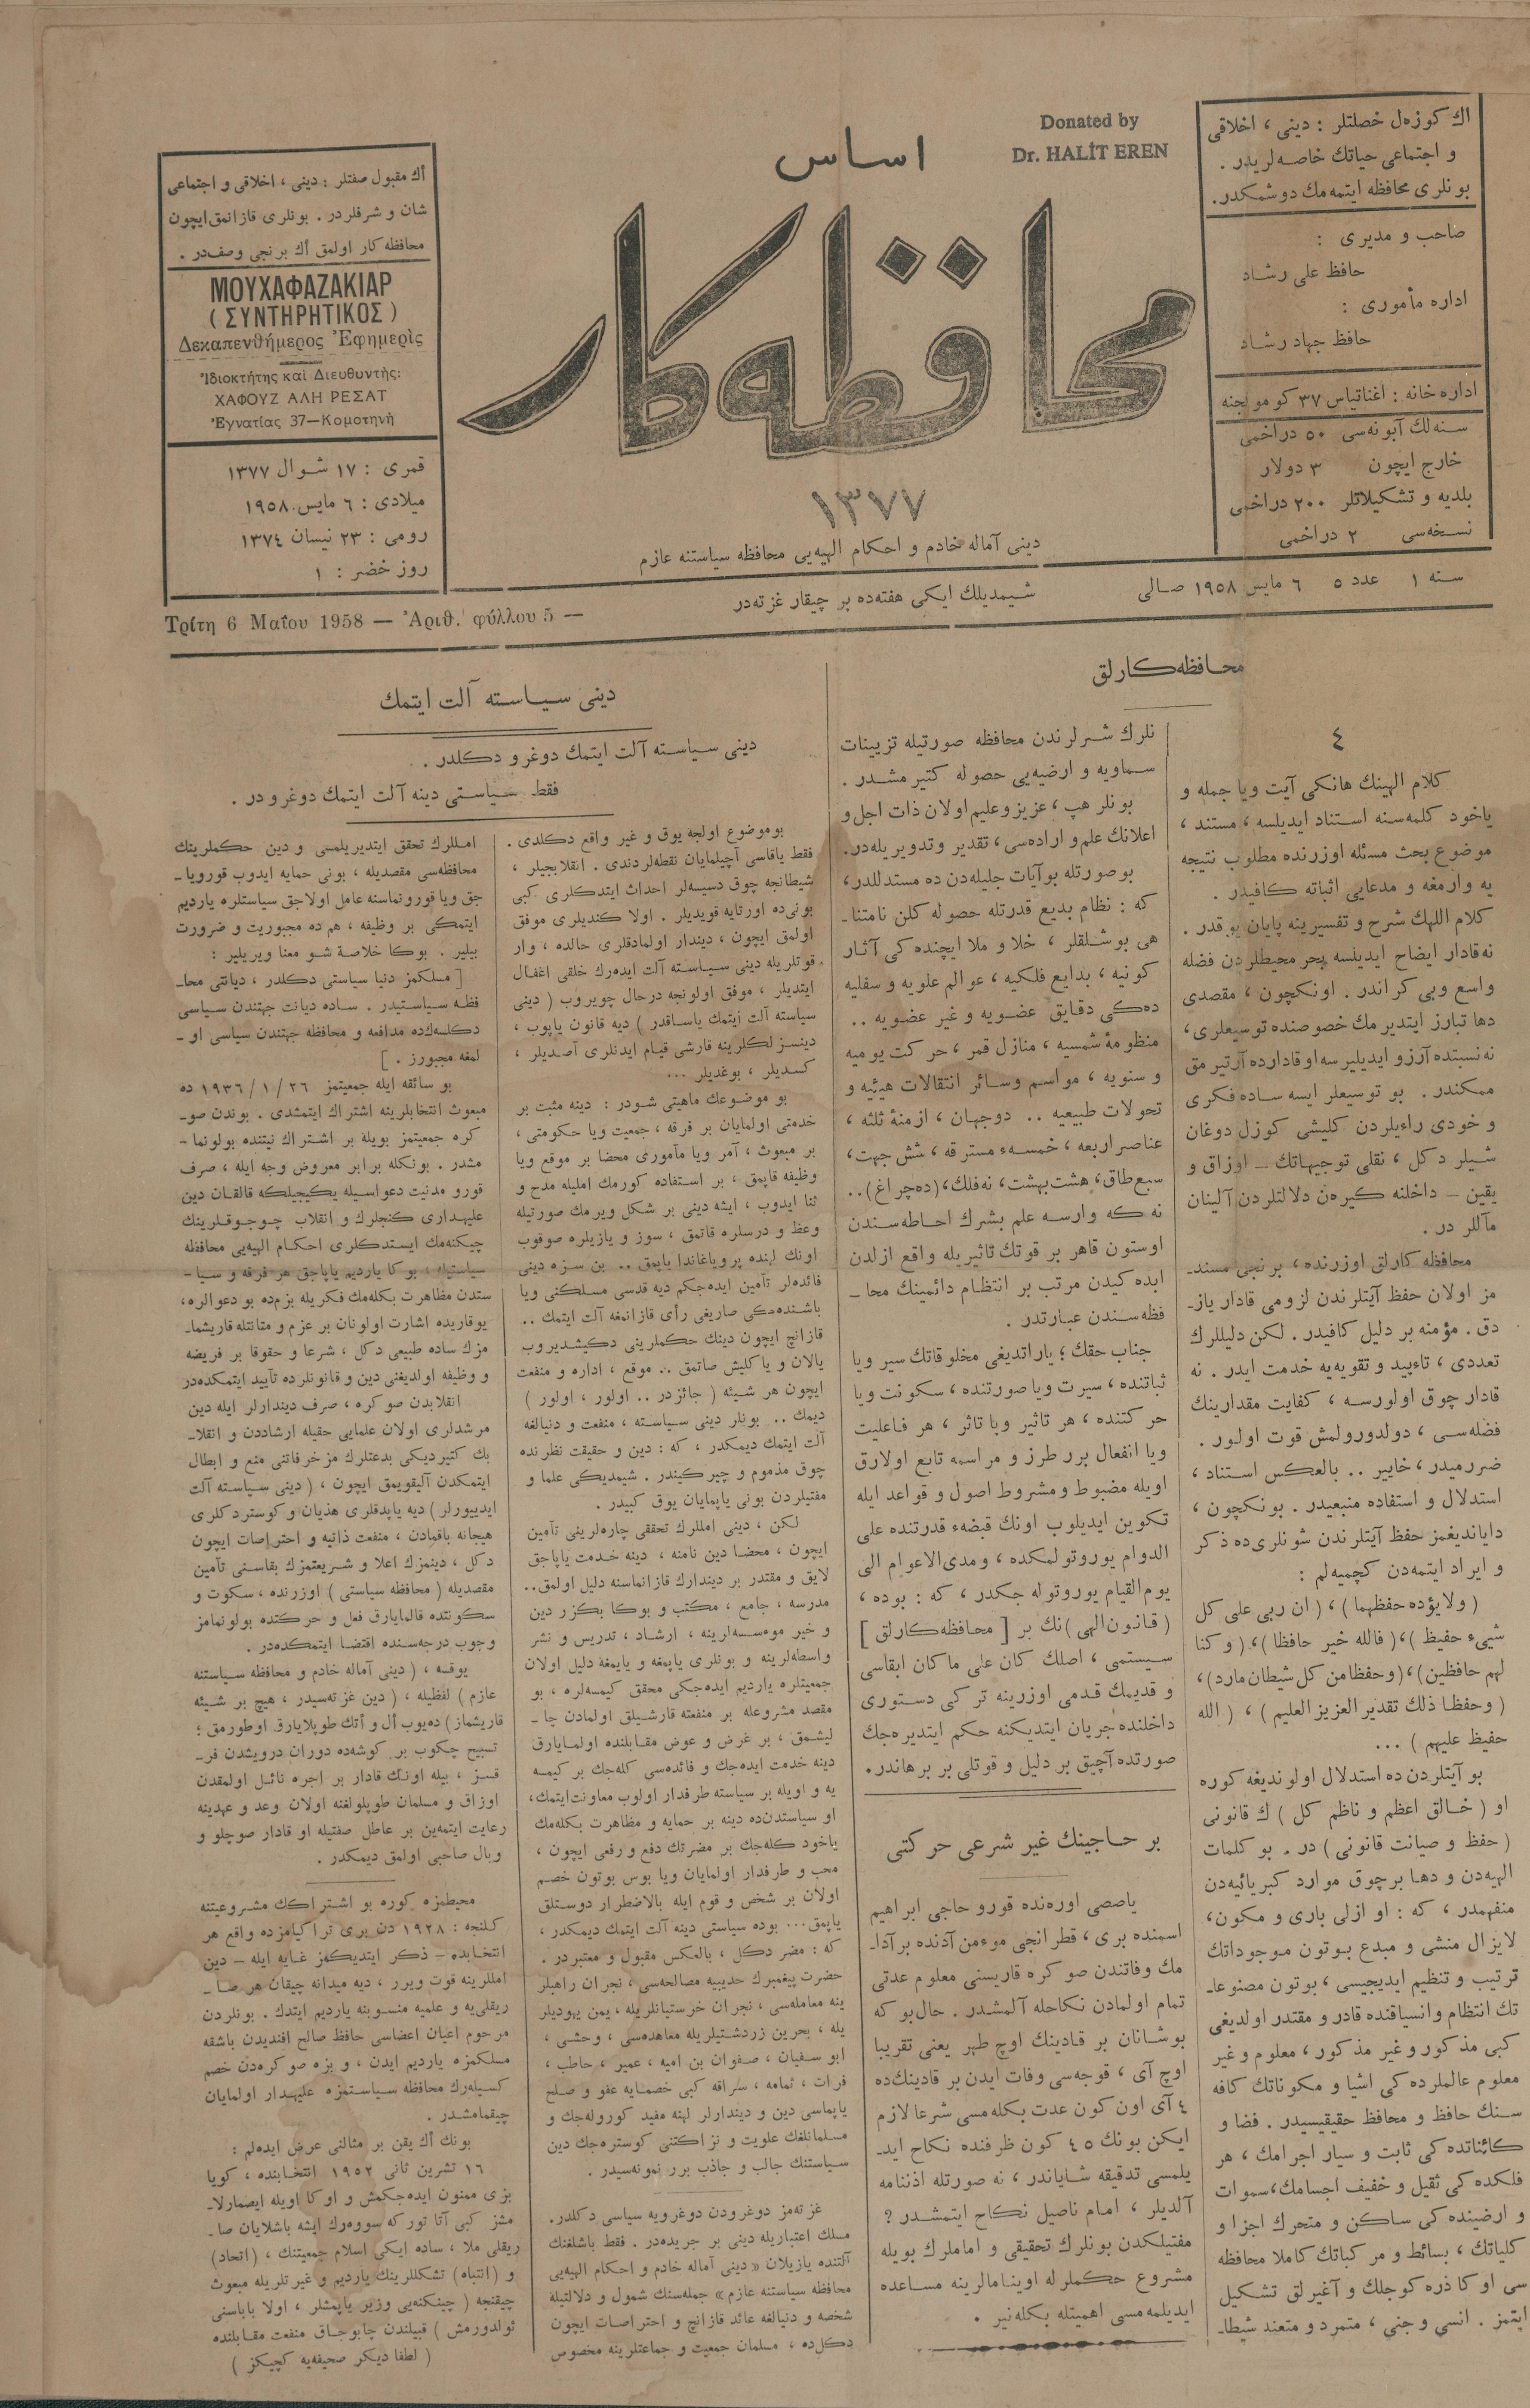 Donated by
Dr. HALİT EREN
اساس
محافظه‌كار
١٣٧٧
دينى آماله خادم و احكام الهيه‌يى محافظه سياستنه عازم
اك كوزه‌ل خصلتلر : دينى ، اخلاقى
و اجتماعى حياتك خاصه‌لريدر .
بونلرى محافظه ايتمه‌مك دوشمكدر.
صاحب و مديرى :
حافظ على رشاد
اداره مأمورى :
حافظ جهاد رشاد
اداره‌خانه : اغناتياس ٣٧ كومولجنه
سنه‌لك آبونه‌سى ٥٠ دراخمى
خارج ايچون ٣ دولار
بلديه و تشكيلاتلر ٢٠٠ دراخمى
نسخه‌سى ٢ دراخمى
اك مقبول صفتلر : دينى ، اخلاقى و اجتماعى
شان و شرفلردر . بونلرى قازانمق ايچون
محافظه‌كار اولمق اك برنجى وصف‌در .
ΜΟΥΧΑΦΑΖΑΚΙΑΡ
( ΣΥΝΤΗΡΗΤΙΚΟΣ )
Δεκαπενθήμερος Ἐφημερὶς
Ἰδιοκτήτης καὶ Διευθυντὴς:
ΧΑΦΟΥΖ ΑΛΗ ΡΕΣΑΤ
Ἐγνατίας 37—Κομοτηνὴ
قمرى : ١٧ شوال ١٣٧٧
ميلادى : ٦ مايس ١٩٥٨
رومى : ٢٣ نيسان ١٣٧٤
روز خضر : ١
سنه ١ عدد ٥ ٦ مايس ١٩٥٨ صالى
شيمديلك ايكى هفته‌ده بر چيقار غزته‌در
Τρίτη 6 Μαΐου 1958 — Ἀριθ. φύλλου 5 —
محافظه‌كارلق
٤
كلام الهينك هانكى آيت ويا جمله و
ياخود كلمه‌سنه استناد ايديلسه ، مستند ،
موضوع بحث مسئله اوزرنده مطلوب نتيجه
يه وارمغه و مدعايى اثباته كافيدر .
كلام اللهك شرح و تفسيرينه پايان يوقدر .
نه‌قادار ايضاح ايديلسه بحر محيطلردن فضله
واسع وبى كراندر . اونكچون ، مقصدى
دها تبارز ايتديرمك خصوصنده توسيعلرى،
نه‌نسبتده آرزو ايديليرسه اوقادارده آرتيرمق
ممكندر . بو توسيعلر ايسه ساده فكرى
و خودى راءيلردن كليشى كوزل دوغان
شيلر دكل ، نقلى توجيهاتك ــ اوزاق و
يقين – داخلنه كيره‌ن دلالتلردن آلينان
مآللر در .
محافظه كارلق اوزرنده ، برنجى مسند-
مز اولان حفظ آيتلرندن لزومى قادار ياز-
دق . مؤمنه بر دليل كافيدر . لكن دليللرك
تعددى ، تاءييد و تقويه‌يه خدمت ايدر . نه
قادار چوق اولورسه ، كفايت مقدارينك
فضله‌سى ، دولدورولمش قوت اولور .
ضررميدر ، خايير .. بالعكس استناد ،
استدلال و استفاده منبعيدر . بونكچون ،
دايانديغمز حفظ آيتلرندن شونلرى‌ده ذكر
و ايراد ايتمه‌دن كچميه‌لم :
( ولايؤده حفظهما ) ، ( ان ربى على كل
شيىء حفيظ )،( فالله خير حافظا )،( وكنا
لهم حافظين)،(وحفظا من كل شيطان مارد)،
( وحفظا ذلك تقدير العزيز العليم ) ، ( الله
حفيظ عليهم ) ...
بو آيتلردن ده استدلال اولونديغه كوره
او ( خالق اعظم و ناظم كل ) ك قانونى
( حفظ و صيانت قانونى ) در . بو كلمات
الهيه‌دن و دها برچوق موارد كبريائيه‌دن
منفهمدر ، كه : او ازلى بارى و مكون،
لايزال منشى و مبدع بوتون موجوداتك
ترتيب و تنظيم ايديجيسى ، بوتون مصنوعا-
تك انتظام وانسياقنده قادر و مقتدر اولديغى
كبى مذكور وغير مذكور ، معلوم و غير
معلوم عالملرده كى اشيا و مكوناتك كافه
سنك حافظ و محافظ حقيقيسيدر . فضا و
كائناتده كى ثابت و سيار اجرامك ، هر
فلكده كى ثقيل و خفيف اجسامك ، سموات
و ارضينده كى ساكن و متحرك اجزا و
كلياتك ، بسائط و مركباتك كاملا محافظه
سى اوكا ذره كوجلك و آغيرلق تشكيل
ايتمز . انسى وجنى ، متمرد و متعند شيطا-
نلرك شرلرندن محافظه صورتيله تزيينات
سماويه و ارضيه‌يى حصوله كتيرمشدر .
بونلر هپ ، عزيز وعليم اولان ذات اجل و
اعلانك علم و اراده‌سى ، تقدير وتدويريله‌در.
بو صورتله بو آيات جليله‌دن ده مستدللدر،
كه : نظام بديع قدرتله حصوله كلن نامتنا-
هى بوشلقلر ، خلا و ملا ايچنده كى آثار
كونيه ، بدايع فلكيه ، عوالم علويه و سفليه
ده‌كى دقايق عضويه و غير عضويه ..
منظومهٔ شمسيه ، منازل قمر ، حركت يوميه
و سنويه ، مواسم وسائر انتقالات هيئيه و
تحولات طبيعيه .. دوجهان ، ازمنهٔ ثلثه ،
عناصر اربعه ، خمسهء مسترقه ، شش جهت ،
سبع طاق، هشت بهشت، نه فلك، (ده چراغ)..
نه كه وارسه علم بشرك احاطه‌سندن
اوستون قاهر بر قوتك تاثيريله واقع ازلدن
ابده كيدن مرتب بر انتظام دائمينك محا-
فظه‌سندن عبارتدر .
جناب حقك ؛ ياراتديغى مخلوقاتك سير ويا
ثباتنده ، سيرت ويا صورتنده ، سكونت ويا
حركتنده ، هر تاثير ويا تاثر ، هر فاعليت
ويا انفعال برر طرز و مراسمه تابع اولارق
اويله مضبوط ومشروط اصول و قواعد ايله
تكوين ايديلوب اونك قبضهء قدرتنده على
الدوام يوروتولمكده ، ومدى الاعوام الى
يوم القيام يوروتوله جكدر ، كه : بوده ،
( قانون الهى ) نك بر [ محافظه‌كارلق ]
سيستمى ، اصلك كان على ماكان ابقاسى
و قديمك قدمى اوزرينه تركى دستورى
داخلنده جريان ايتديكنه حكم ايتديره‌جك
صورتده آچيق بر دليل و قوتلى بر برهاندر.
بر حاجينك غير شرعى حركتى
ياصصى اوره‌نده قورو حاجى ابراهيم
اسمنده برى ، قطرانجى موءمن آدنده بر آدا-
مك وفاتندن صوكره قاريسنى معلوم عدتى
تمام اولمادن نكاحله آلمشدر . حال بو كه
بوشانان بر قادينك اوچ طهر يعنى تقريبا
اوچ آى ، قوجه‌سى وفات ايدن بر قادينك‌ده
٤ آى اون كون عدت بكله‌مسى شرعا لازم
ايكن بونك ٤٥ كون ظرفنده نكاح ايد-
يلمسى تدقيقه شاياندر ، نه صورتله اذننامه
آلديلر ، امام ناصيل نكاح ايتمشدر ؟
مفتيلكدن بونلرك تحقيقى و اماملرك بويله
مشروع حكملرله اوينامالرينه مساعده
ايديلمه‌مسى اهميتله بكله‌نير .
دينى سياسته آلت ايتمك
دينى سياسته آلت ايتمك دوغرو دكلدر .
فقط سياستى دينه آلت ايتمك دوغرودر .
بوموضوع اولجه يوق و غير واقع دكلدى .
فقط ياقاسى آچيلمايان نقطه‌لردندى . انقلابجيلر ،
شيطانجه چوق دسيسه‌لر احداث ايتدكلرى كبى
بونى‌ده اورتايه قويديلر . اولا كنديلرى موفق
اولمق ايچون ، ديندار اولمادقلرى حالده ، وار
قوتلريله دينى سياسته آلت ايده‌رك خلقى اغفال
ايتديلر ، موفق اولونجه درحال چويروب ( دينى
سياسته آلت ايتمك ياساقدر ) ديه قانون ياپوب ،
دينسزلكلرينه قارشى قيام ايدنلرى آصديلر ،
كسديلر ، بوغديلر ...
بو موضوعك ماهيتى شودر : دينه مثبت بر
خدمتى اولمايان بر فرقه ، جمعيت ويا حكومتى ،
بر مبعوث ، آمر ويا مأمورى محضا بر موقع ويا
وظيفه قاپمق ، بر استفاده كورمك امليله مدح و
ثنا ايدوب ، ايشه دينى بر شكل ويرمك صورتيله
وعظ و درسلره قاتمق ، سوز و يازيلره صوقوب
اونك لهنده پروپاغاندا ياپمق .. بن سزه دينى
فائده‌لر تأمين ايده‌جكم ديه قدسى مسلكنى ويا
باشنده‌كى صاريغى رأى قازانمغه آلت ايتمك ..
قازانچ ايچون دينك حكملرينى دكيشديروب
يالان و ياكليش صاتمق .. موقع ، اداره و منفعت
ايچون هر شيئه ( جائزدر .. اولور ، اولور )
ديمك .. بونلر دينى سياسته ، منفعت و دنيالغه
آلت ايتمك ديمكدر ، كه : دين و حقيقت نظرنده
چوق مذموم و چيركيندر . شيمديكى علما و
مفتيلردن بونى ياپمايان يوق كبيدر .
لكن ، دينى امللرك تحققى چاره‌لرينى تأمين
ايچون ، محضا دين نامنه ، دينه خدمت ياپاجق
لايق و مقتدر بر ديندارك قازانماسنه دليل اولمق..
مدرسه ، جامع ، مكتب و بوكا بكزر دين
و خير موءسسه‌لرينه ، ارشاد ، تدريس و نشر
واسطه‌لرينه و بونلرى ياپمغه و ياپمغه دليل اولان
جمعيتلره يارديم ايده‌جكى محقق كيمسه‌لره ، بو
مقصد مشروعله بر منفعته قارشيلق اولمادن چا-
ليشمق ، بر غرض و عوض مقابلنده اولمايارق
دينه خدمت ايده‌جك و فائده‌سى كله‌جك بر كيمسه
يه و اويله بر سياسته طرفدار اولوب معاونت ايتمك،
او سياستدن‌ده دينه بر حمايه و مظاهرت بكله‌مك
ياخود كله‌جك بر مضرتك دفع و رفعى ايچون ،
محب و طرفدار اولمايان ويا بوس بوتون خصم
اولان بر شخص و قوم ايله بالاضطرار دوستلق
ياپمق... بوده سياستى دينه آلت ايتمك ديمكدر ،
كه : مضر دكل ، بالعكس مقبول و معتبردر .
حضرت پيغمبرك حديبيه مصالحه‌سى ، نجران راهبلر
ينه معامله‌سى ، نجران خرستيانلريله ، يمن يهوديلر
يله ، بحرين زردشتيلريله معاهده‌سى ، وحشى ،
ابو سفيان ، صفوان بن اميه ، عمير ، حاطب ،
فرات ، ثمامه ، سراقه كبى خصمايه عفو و صلح
ياپماسى دين و ديندارلر لهنه مفيد كوروله‌جك و
مسلمانلغك علويت و نزاكتنى كوستره‌جك دين
سياستنك جالب و جاذب برر نمونه‌سيدر .
غزته‌مز دوغرودن دوغرويه سياسى دكلدر.
مسلك اعتباريله دينى بر جريده‌در . فقط باشلغنك
آلتنده يازيلان « دينى آماله خادم و احكام الهيه‌يى
محافظه سياستنه عازم » جمله‌سنك شمول و دلالتيله
شخصه و دنيالغه عائد قازانچ و احتراصات ايچون
دكل‌ده ، مسلمان جمعيت و جماعتلرينه مخصوص
امللرك تحقق ايتديريلمسى و دين حكملرينك
محافظه‌سى مقصديله ، بونى حمايه ايدوب قورويا-
جق ويا قورونماسنه عامل اولاجق سياستلره يارديم
ايتمكى بر وظيفه ، هم‌ده مجبوريت و ضرورت
بيلير . بوكا خلاصة شو معنا ويريلير :
[ مسلكمز دنيا سياستى دكلدر ، ديانتى محا-
فظه سياستيدر . ساده ديانت جهتندن سياسى
دكلسه‌ك‌ده مدافعه و محافظه جهتندن سياسى او-
لمغه مجبورز . ]
بو سائقه ايله جمعيتمز ٢٦ / ١ / ١٩٣٦ ده
مبعوث انتخابلرينه اشتراك ايتمشدى . بوندن صو-
كره جمعيتمز بويله بر اشتراك نيتنده بولونما-
مشدر . بونكله برابر معروض وجه ايله ، صرف
قورو مدنيت دعواسيله يكيجيلكه قالقان دين
عليهدارى كنجلرك و انقلاب چوجوقلرينك
چيكنه‌مك ايستدكلرى احكام الهيه‌يى محافظه
سياستيله ، بوكا يارديم ياپاجق هر فرقه و سيا-
ستدن مظاهرت بكله‌مك فكريله بزم‌ده بو دعوالره،
يوقاريده اشارت اولونان بر عزم و متانتله قاريشما-
مزك ساده طبيعى دكل ، شرعا و حقوقا بر فريضه
و وظيفه اولديغنى دين و قانونلرده تأييد ايتمكده‌در
انقلابدن صوكره ، صرف ديندارلر ايله دين
مرشدلرى اولان علمايى حقيله ارشاددن و انقلا-
بك كتيرديكى بدعتلرك مزخرفاتنى منع و ابطال
ايتمكدن آليقويمق ايچون ، ( دينى سياسته آلت
ايدييورلر ) ديه ياپدقلرى هذيان و كوستردكلرى
هيجانه باقمادن ، منفعت ذاتيه و احتراصات ايچون
دكل ، دينمزك اعلا و شريعتمزك بقاسنى تأمين
مقصديله ( محافظه سياستى ) اوزرنده ، سكوت و
سكونتده قالمايارق فعل و حركتده بولونمامز
وجوب درجه‌سنده اقتضا ايتمكده‌در.
يوقسه ، ( دينى آماله خادم و محافظه سياستنه
عازم ) لفظيله ، ( دين غزته‌سيدر ، هيچ بر شيئه
قاريشماز ) ده‌يوب أل و أتك طوپلايارق اوطورمق ؛
تسبيح چكوب بر كوشه‌ده دوران درويشدن فر-
قسز ، بيله اونك قادار بر اجره نائل اولمقدن
اوزاق و مسلمان طوپلولغنه اولان وعد و عهدينه
رعايت ايتمه‌ين بر عاطل صفتيله او قادار صوچلو و
وبال صاحبى اولمق ديمكدر .
محيطمزه كوره بو اشتراكك مشروعيتنه
كلنجه : ١٩٢٨ دن برى تراكيامزده واقع هر
انتخابده – ذكر ايتديكمز غايه ايله – دين
امللرينه قوت ويرر ، ديه ميدانه چيقان هر صا-
ريقلى‌يه و علميه منسوبنه يارديم ايتدك . بونلردن
مرحوم اعيان اعضاسى حافظ صالح افنديدن باشقه
مسلكمزه يارديم ايدن ، و بزه صوكره‌دن خصم
كسيله‌رك محافظه سياستمزه عليهدار اولمايان
چيقمامشدر .
بونك أك يقين بر مثالنى عرض ايده‌لم :
١٦ تشرين ثانى ١٩٥٢ انتخابنده ، كويا
بزى ممنون ايده‌جكمش و اوكا اويله ايصمارلا-
مشز كبى آتا توركه سووه‌رك ايشه باشلايان صا-
ريقلى ملا ، ساده ايكى اسلام جمعيتنك ، (اتحاد)
و (انتباه) تشكللرينك يارديم و غيرتلريله مبعوث
چيقنجه ( چينكنه‌يى وزير ياپمشلر ، اولا باباسنى
ئولدورمش ) قبيلندن چابوجاق منفعت مقابلنده
( لطفا ديكر صحيفه‌يه كچيكز )